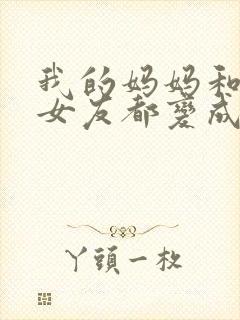 我的妈妈和
女友都變成
丫頭一枚